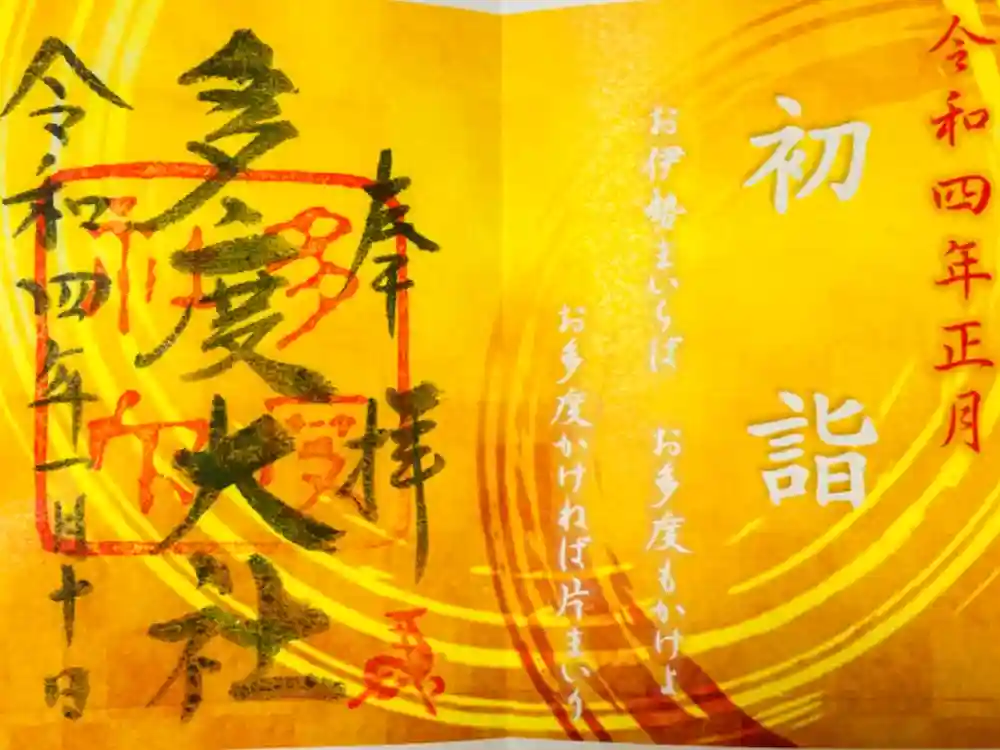 令和四年正月
初詣
お伊勢まいらば お多度もかけよ
お多度かけねば片まいり
奉拝
多度大社
令和四年一月十日
多度大社